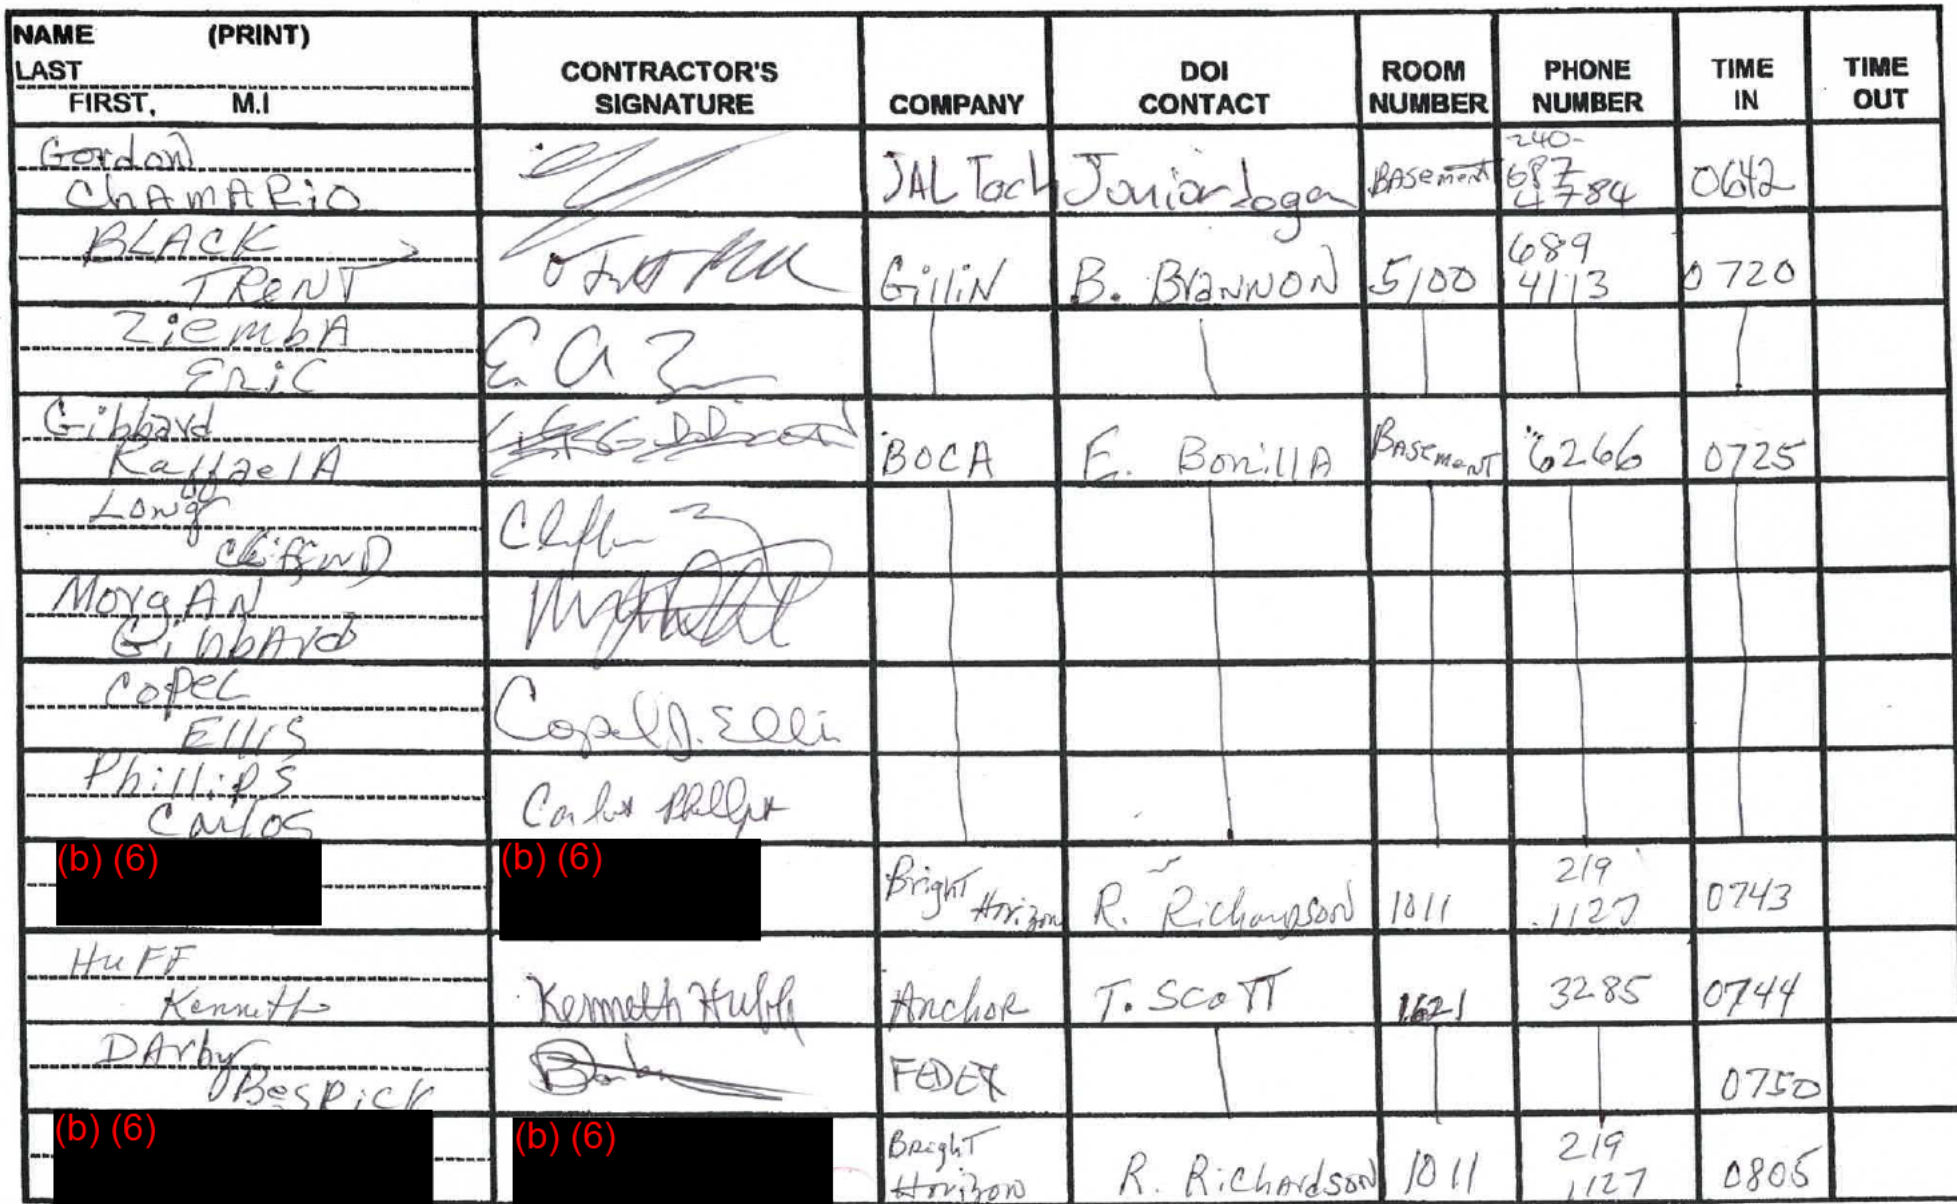 NAME (PRINT)
LAST
FIRST, M.I
CONTRACTOR'S SIGNATURE
COMPANY
DOI CONTACT
ROOM NUMBER
PHONE NUMBER
TIME IN
TIME OUT
Gordon
ChAMARio
JAL Tech Junior Logan Basement 240-687 4784 0642
BLACK
TRENT
Gillin B. Brannon 5100 689 4113 0720
ZiembA
ERiC
E. A. Z
Gibbard
RaffaelA
BOCA E. BonillA Basement 6266 0725
Long
MorgAN
GibbArd
Copel
Ellis
Copel J. Ellis
Phillips
Carlos
Carlos Phillips
(b) (6) (b) (6)
Bright Horizon R. Richardson 1011 219 1127 0743
Huff
Kenneth
Kenneth Huff Anchor T. Scott 1621 3285 0744
DArby
Bespick
FEDEX 0750
(b) (6) (b) (6)
Bright Horizon R. Richardson 1011 219 1127 0805